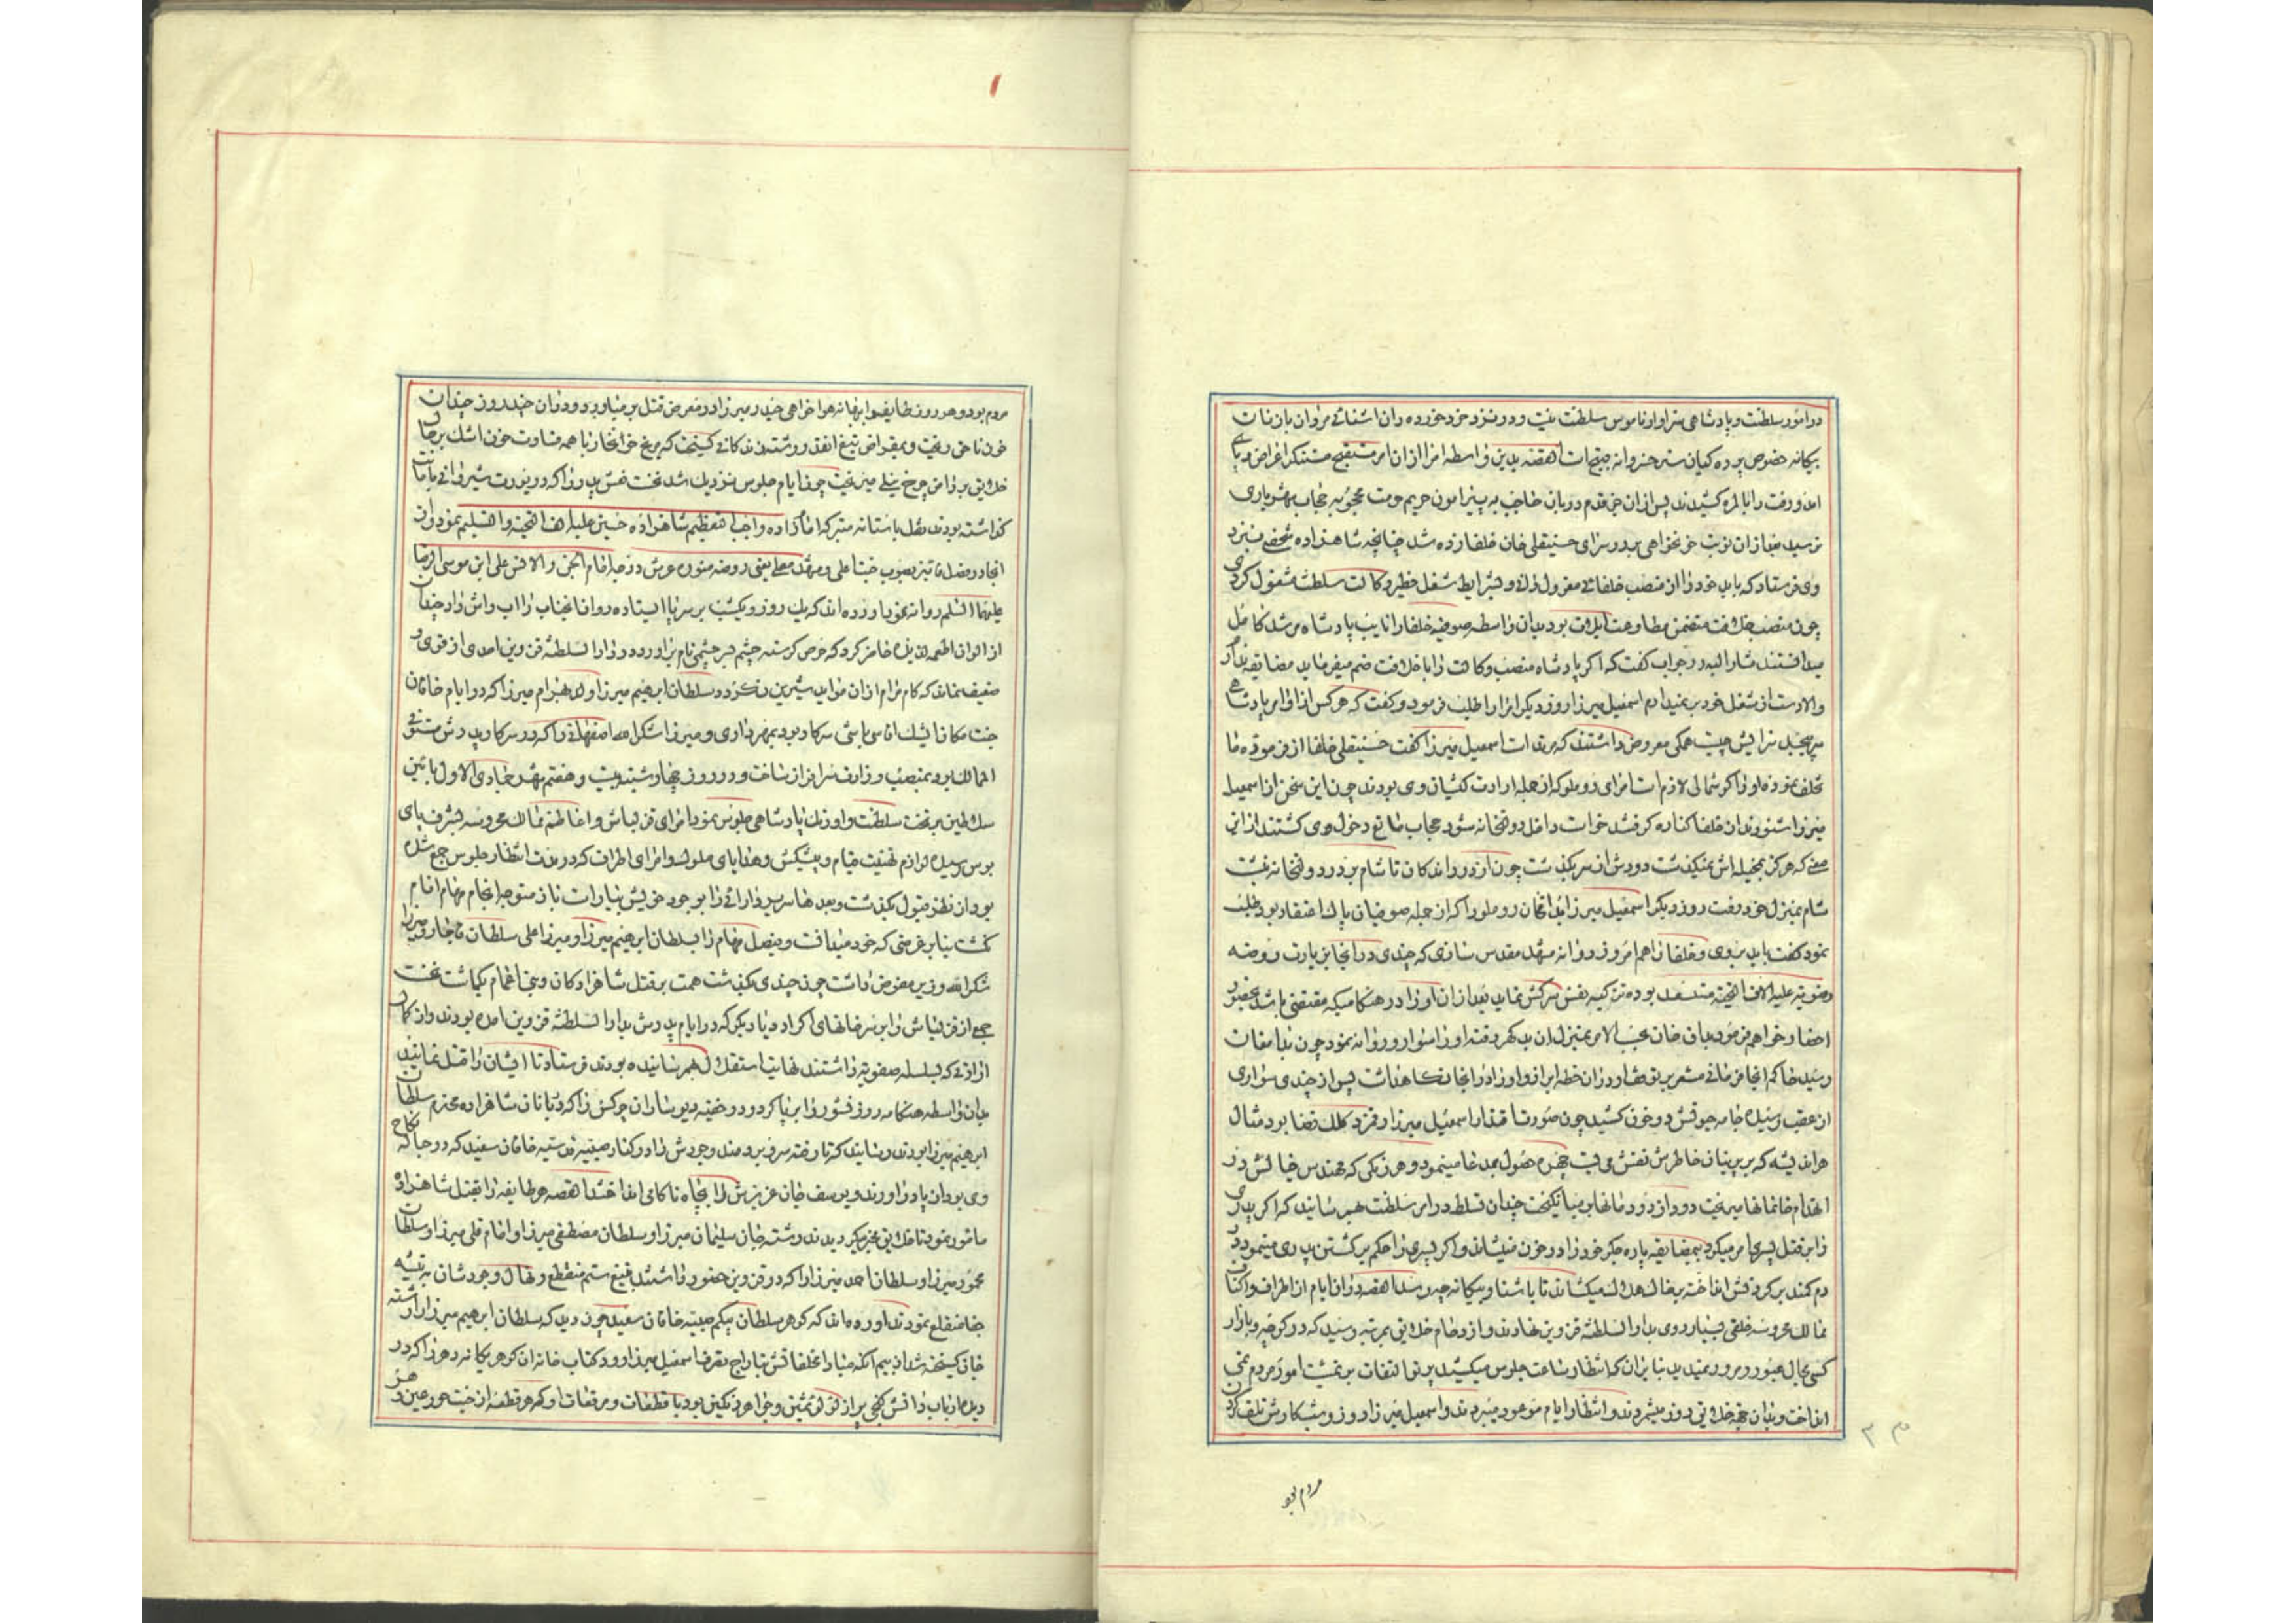 در امور سلطنت و پادشاهی سزاوار ناموس سلطنت نیست و در نزد خرد خورده دان اشنائے مردان با زنان
بیکانه خصوص پرده کیان ستر خسروانه مستقبح است القصه بدین واسطه امرا از ان امر مستقبح مستنکر اغراض و پای
امد و رفت را بالمره کشیدند پس از ان حرف قدم دربان حاجب به پیرامون حریم حرمت محجوبه حجاب شهریاری
نرسید بعد از ان نوبت خونخواهی بدر سرای حسینقلی خان خلفا زده شد چنانچه شاهزاده شخصے بنزد
وی فرستاد که باید خود را از منصب خلفائے معزول دانے و بشرایط شغل خطیر وکالت سلطنت مشغول کردی
چون منصب خلافت متضمن مطاوعت ایلات بود بدان واسطه صوفیه خلفا را نایب پادشاه مرشد کامل
میدانستند مشار الیه در جواب کفت که اکر پادشاه منصب وکالت را با خلافت ضم میفرماید مضایقه ندارم
والا دست از شغل خود بر نمیدارم اسمعیل میرزا روز دیکر امرا را طلب فرمود و کفت که هر کس از اوامر پادشاهے
سر پیچد سزایش چیست همکی معروض داشتند که مرتد است اسمعیل میرزا کفت حسینقلی خلفا از فرموده ما
تخلف نموده او را کوشمالی لازم است امرای روملو که از جمله ارادت کیشان وی بودند چون این سخن از اسمعیل
میرزا شنودند از خلفا کناره کرفتند خواست داخل دولتخانه شود حجاب مانع دخول وی کشتند از این
معنے که هرکز بمخیله اش نمیکذشت دودش از سر بکذشت چون از در راندکان تا شام بر در دولتخانه نشست
شام بمنزل خود رفت روز دیکر اسمعیل میرزا بداغخان روملو را که از جمله صوفیان پاک اعتقاد بود طلب
نمود کفت باید بروی و خلفا را هم امروز روانه مشهد مقدس سازی که چندی در انجا بزیارت روضه
رضویه علیه الاف التحیته مشغول بوده تزکیه نفس سرکش نماید بعد از ان او را در هنکامیکه مقتضی باشد بحضور
احضار خواهم فرمود بداق خان بحسب الامر بمنزل ان بدکهر رفته او را سوار و روانه نمود چون بدامغان
رسید حاکم انجا فرمانے مشعر بر توقف او در ان خطه ابراز و او را در انجا نکاهداشت پس از چندی سواری
از عقب رسیده جامه جوقش در خون کشید چون صورت اقتدار اسمعیل میرزا رقم زد کلک قضا بود مثال
هر اندیشه که بر پرنیان خاطرش نقش می بست چهره حصول بمدعا مینمود و هر رنکی که مهندس خیالش در
انهدام خانمانها میریخت دود از دودمانها بر میانکیخت چندان تسلط در امر سلطنت بهم رسانید که اکر پدری
را بر قتل پسری امر میکرد بیمضایقه پاره جکر خود را در خون مینشاند و اکر پسری را حکم بر کشتن پدری مینمود در
دم کمند بر کردنش انداخته بر خاک هلاک میکشاند تا با اشنا و بیکانه چه رسد القصه در ان ایام از اطراف و اکناف
ممالک محروسه خلقی بسیار روی بدار السلطنه قزوین نهادند و ازدحام خلایق بمرتبه رسید که در کوچه و بازار
کسی مجال عبور و مرور نمیدید بنابران که انتظار ساعت جلوس میکشید پرتو التفات بر تمشیت امور مردم نمی
انداخت و بدان جهة خلایق روز میشمردند و انتظار ایام موعود میبردند و اسمعیل میرزا روز و شب کارش تلف کردن
مردم بود
مردم بود و هر روز طایفه را ببهانه هواخواهی حیدر میرزا در معرض قتل بر میاورد و در ان چند روز چندان
خون ناحق ریخت و بمقراض تیغ انقدر رشته زندکانے کسیخت که مریخ خونخوار با همه قساوت خون اشک بر حال
خلایق بر دامن چرخ نیلے میریخت چون ایام جلوس نزدیک شد نخست نعش پدر را که در یورت شیروانے بامانت
کذاشته بودند نقل باستانه متبرکه امامزاده واجب التعظیم شاهزاده حسین علیه التحیته والتسلیم نمود و از
انجا در فصل تابستان بصوب جنت اعلی و مشهد معلے یعنی روضه منوره عرش درجه امام الجن والانس علی ابن موسی الرضا
علیهما السلم روانه نمود اورده اند که یک روز و یکشب بر سر پا ایستاده روان انجناب را اب واش داد چندان
از الوان اطعمه لذیذه حاضر کرد که حرص کرسنه چشم سیر چشمی نام براورد و در دار السلطنه قزوین احدی از قوی و
ضعیف نماند که کام مرام از ان مواید شیرین نکرد و سلطان ابرهیم میرزا ولد بهرام میرزا که در ایام خاقان
جنت مکان ایشیک اقاسی باشی سرکار بود بمهرداری و میرزا شکرالله اصفهانے را که در سرکار پدرش مستوفے
الممالک بود بمنصب وزارت سرافراز ساخت و در روز چهارشنبه بیست و هفتم شهر جمادی الاول بائین
سلاطین بر تخت سلطنت و اورنک پادشاهی جلوس نمود امرای قزلباش و اعاظم ممالک محروسه بشرف پای
بوس رسیده لوازم تهنیت قیام و پیشکش و هدایای ملوک و امرای اطراف که در مدت انتظار جلوس جمع شده
بود از نظر قبول بکذشت و بعدها سریر دارائے را بوجود خویش بیاراست باز متوجه انجام مهام انام
نکشت بنابر غرضی که خود میدانست و فیصل مهام را بسلطان ابرهیم میرزا و میرزا علی سلطان قاجار و میرزا
شکرالله وزیر مفوض داشت چون چندی بکذشت همت بر قتل شاهزادکان و بنی اعمام بکماشت نخست
جمعے از قزلباش را بر سر خانهای اکراد و یا دیکر که در ایام پدرش بدار السلطنه قزوین امده بودند و از کمال
ارادتے که بسلسله صفویه داشتند نهایت استقلال بهم رسانیده بودند فرستاد تا ایشان را قتل نمایند
بدان واسطه هنکامه روز نشور را بر پا کرد و در خفیه دیوساران چرکس را که دربانان شاهزاده محترم سلطان
ابرهیم میرزا بودند رسانید که تا رفته سرو برومند وجودش را در کنار صبیه قدسیه خاقان سعید که در حباله نکاح
وی بود از پا در اورند و یوسف جان عزیزش را بچاه ناکامی انداختند القصه هر طایفه را بقتل شاهزاده
مامور نمود تا خلایق خبر میکردیدند رشته جان سلیمان میرزا و سلطان مصطفی میرزا و امام قلی میرزا و سلطان
محمود میرزا و سلطان احمد میرزا را که در قزوین حضور داشتند بتیغ ستم منقطع و نهال وجودشان به تیشه
جفا منقلع نمودند اورده اند که کوهر سلطان بیکم صبیه خاقان سعید چون دید که سلطان ابرهیم میرزا را رشته
جان کسیخته شد از بیم انکه مبادا مخلفاتش بتاراج بتصرف اسمعیل میرزا رود کتاب خانه ان کوهر یکانه دهر را که در
دیده ارباب دانش کنجی پر از لولو ثمین و جواهر رنکین بود با قطعات و مرقعات او که هر قطعه از جنت حور عین و هر